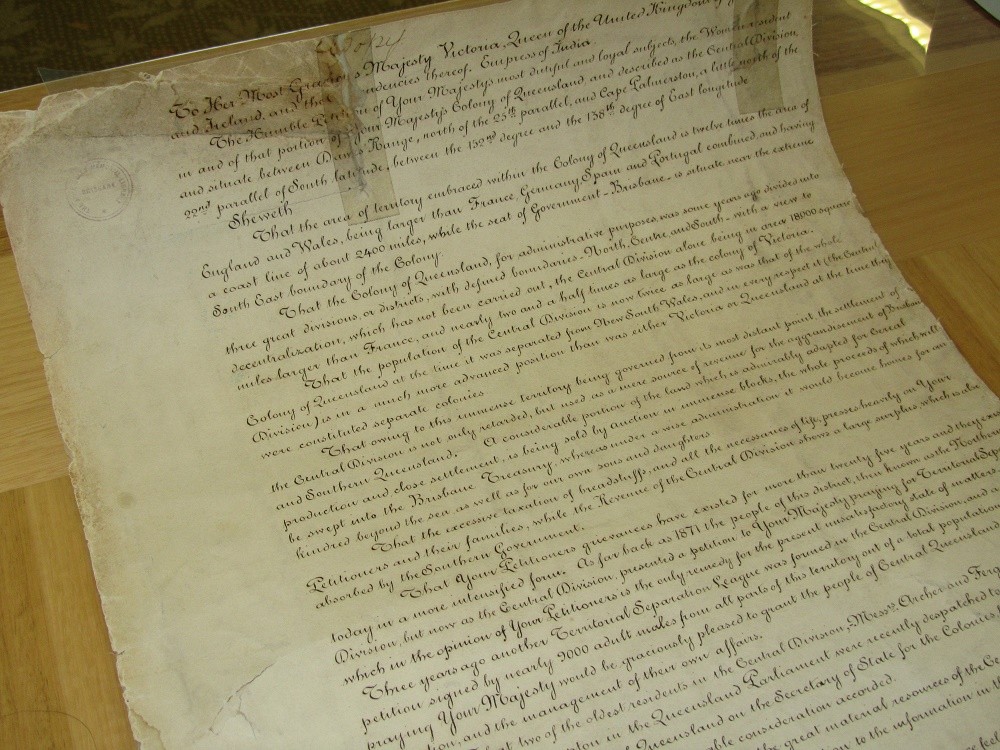 To Her Most Gracious Majesty Victoria, Queen of the United Kingdom of
and Ireland, and the dependencies thereof. Empress of India.
The Humble Petition of Your Majesty's most dutiful and loyal subjects, the Women resident
in and of that portion of Your Majesty's Colony of Queensland, and described as the Central Division,
and situate between Dawes Range, north of the 25th parallel, and Cape Palmerston, a little north of the
22nd parallel of South latitude, between the 152nd degree and the 138th degree of East longitude
Sheweth
That the area of territory embraced within the Colony of Queensland is twelve times the area of
England and Wales, being larger than France, Germany, Spain and Portugal combined, and having
a coast line of about 2400 miles, while the seat of Government - Brisbane - is situate near the extreme
South East boundary of the Colony.
That the Colony of Queensland, for administrative purposes, was some years ago divided into
three great divisions, or districts, with defined boundaries - North, Centre, and South - with a view to
decentralization, which has not been carried out, the Central Division alone being in area 18000 square
miles larger than France, and nearly two and a half times as large as the colony of Victoria.
That the population of the Central Division is now twice as large as was that of the whole
Colony of Queensland at the time it was separated from New South Wales, and in every respect it (the Central
Division) is in a much more advanced position than was either Victoria or Queensland at the time they
were constituted separate colonies
That owing to this immense territory being governed from its most distant point, the settlement of
the Central Division is not only retarded, but used as a mere source of revenue for the aggrandisement of Brisbane
and Southern Queensland. A considerable portion of the land which is admirably adapted for Cereal
production and close settlement, is being sold by auction in immense blocks, the whole proceeds of which will
be swept into the Brisbane Treasury, whereas under a wise administration it would become homes for our
kindred beyond the sea as well as for our own sons and daughters
That the excessive taxation of breadstuffs, and all the necessaries of life, presses heavily on Your
Petitioners and their families, while the Revenue of the Central Division shows a large surplus, which is also
absorbed by the Southern Government.
That Your Petitioners grievances have existed for more than twenty five years and they exist
today in a more intensified form. As far back as 1871 the people of this district, then known as the Northern
Division, but now as the Central Division, presented a petition to Your Majesty praying for Territorial
which in the opinion of Your Petitioners is the only remedy for the present unsatisfactory state of matters
Three years ago another Territorial Separation League was formed in the Central Division, and a
petition signed by nearly 9000 adult males from all parts of this territory out of a total population
praying Your Majesty would be graciously pleased to grant the people of Central Queensland
and the management of their own affairs.
That two of the oldest residents in the Central Division, Messrs. Archer and
in the Queensland Parliament were recently despatched to
Queensland on the Secretary of State for the Colonies
consideration accorded.
the great material resources of the
to the information in